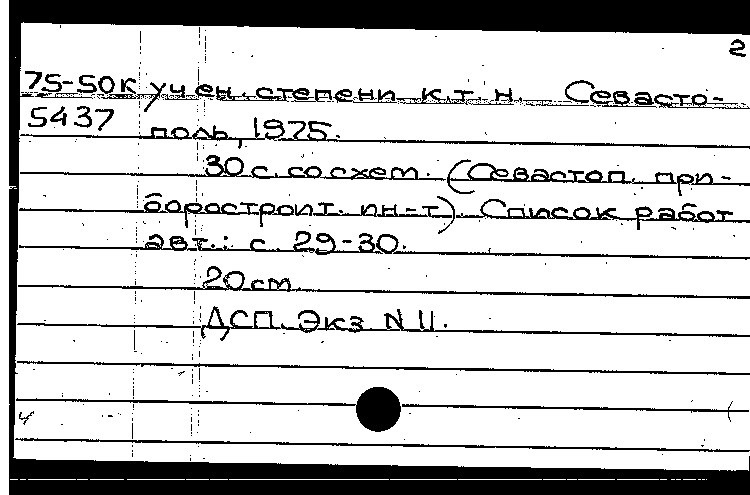 2
75-50К учен. степени к.т.н. Севасто-
5437 поль, 1975.
30 с. со схем. (Севастоп. при-
боростроит. ин-т). Список работ
авт.: с. 29-30.
20 см.
ДСП. Экз N 11.
4